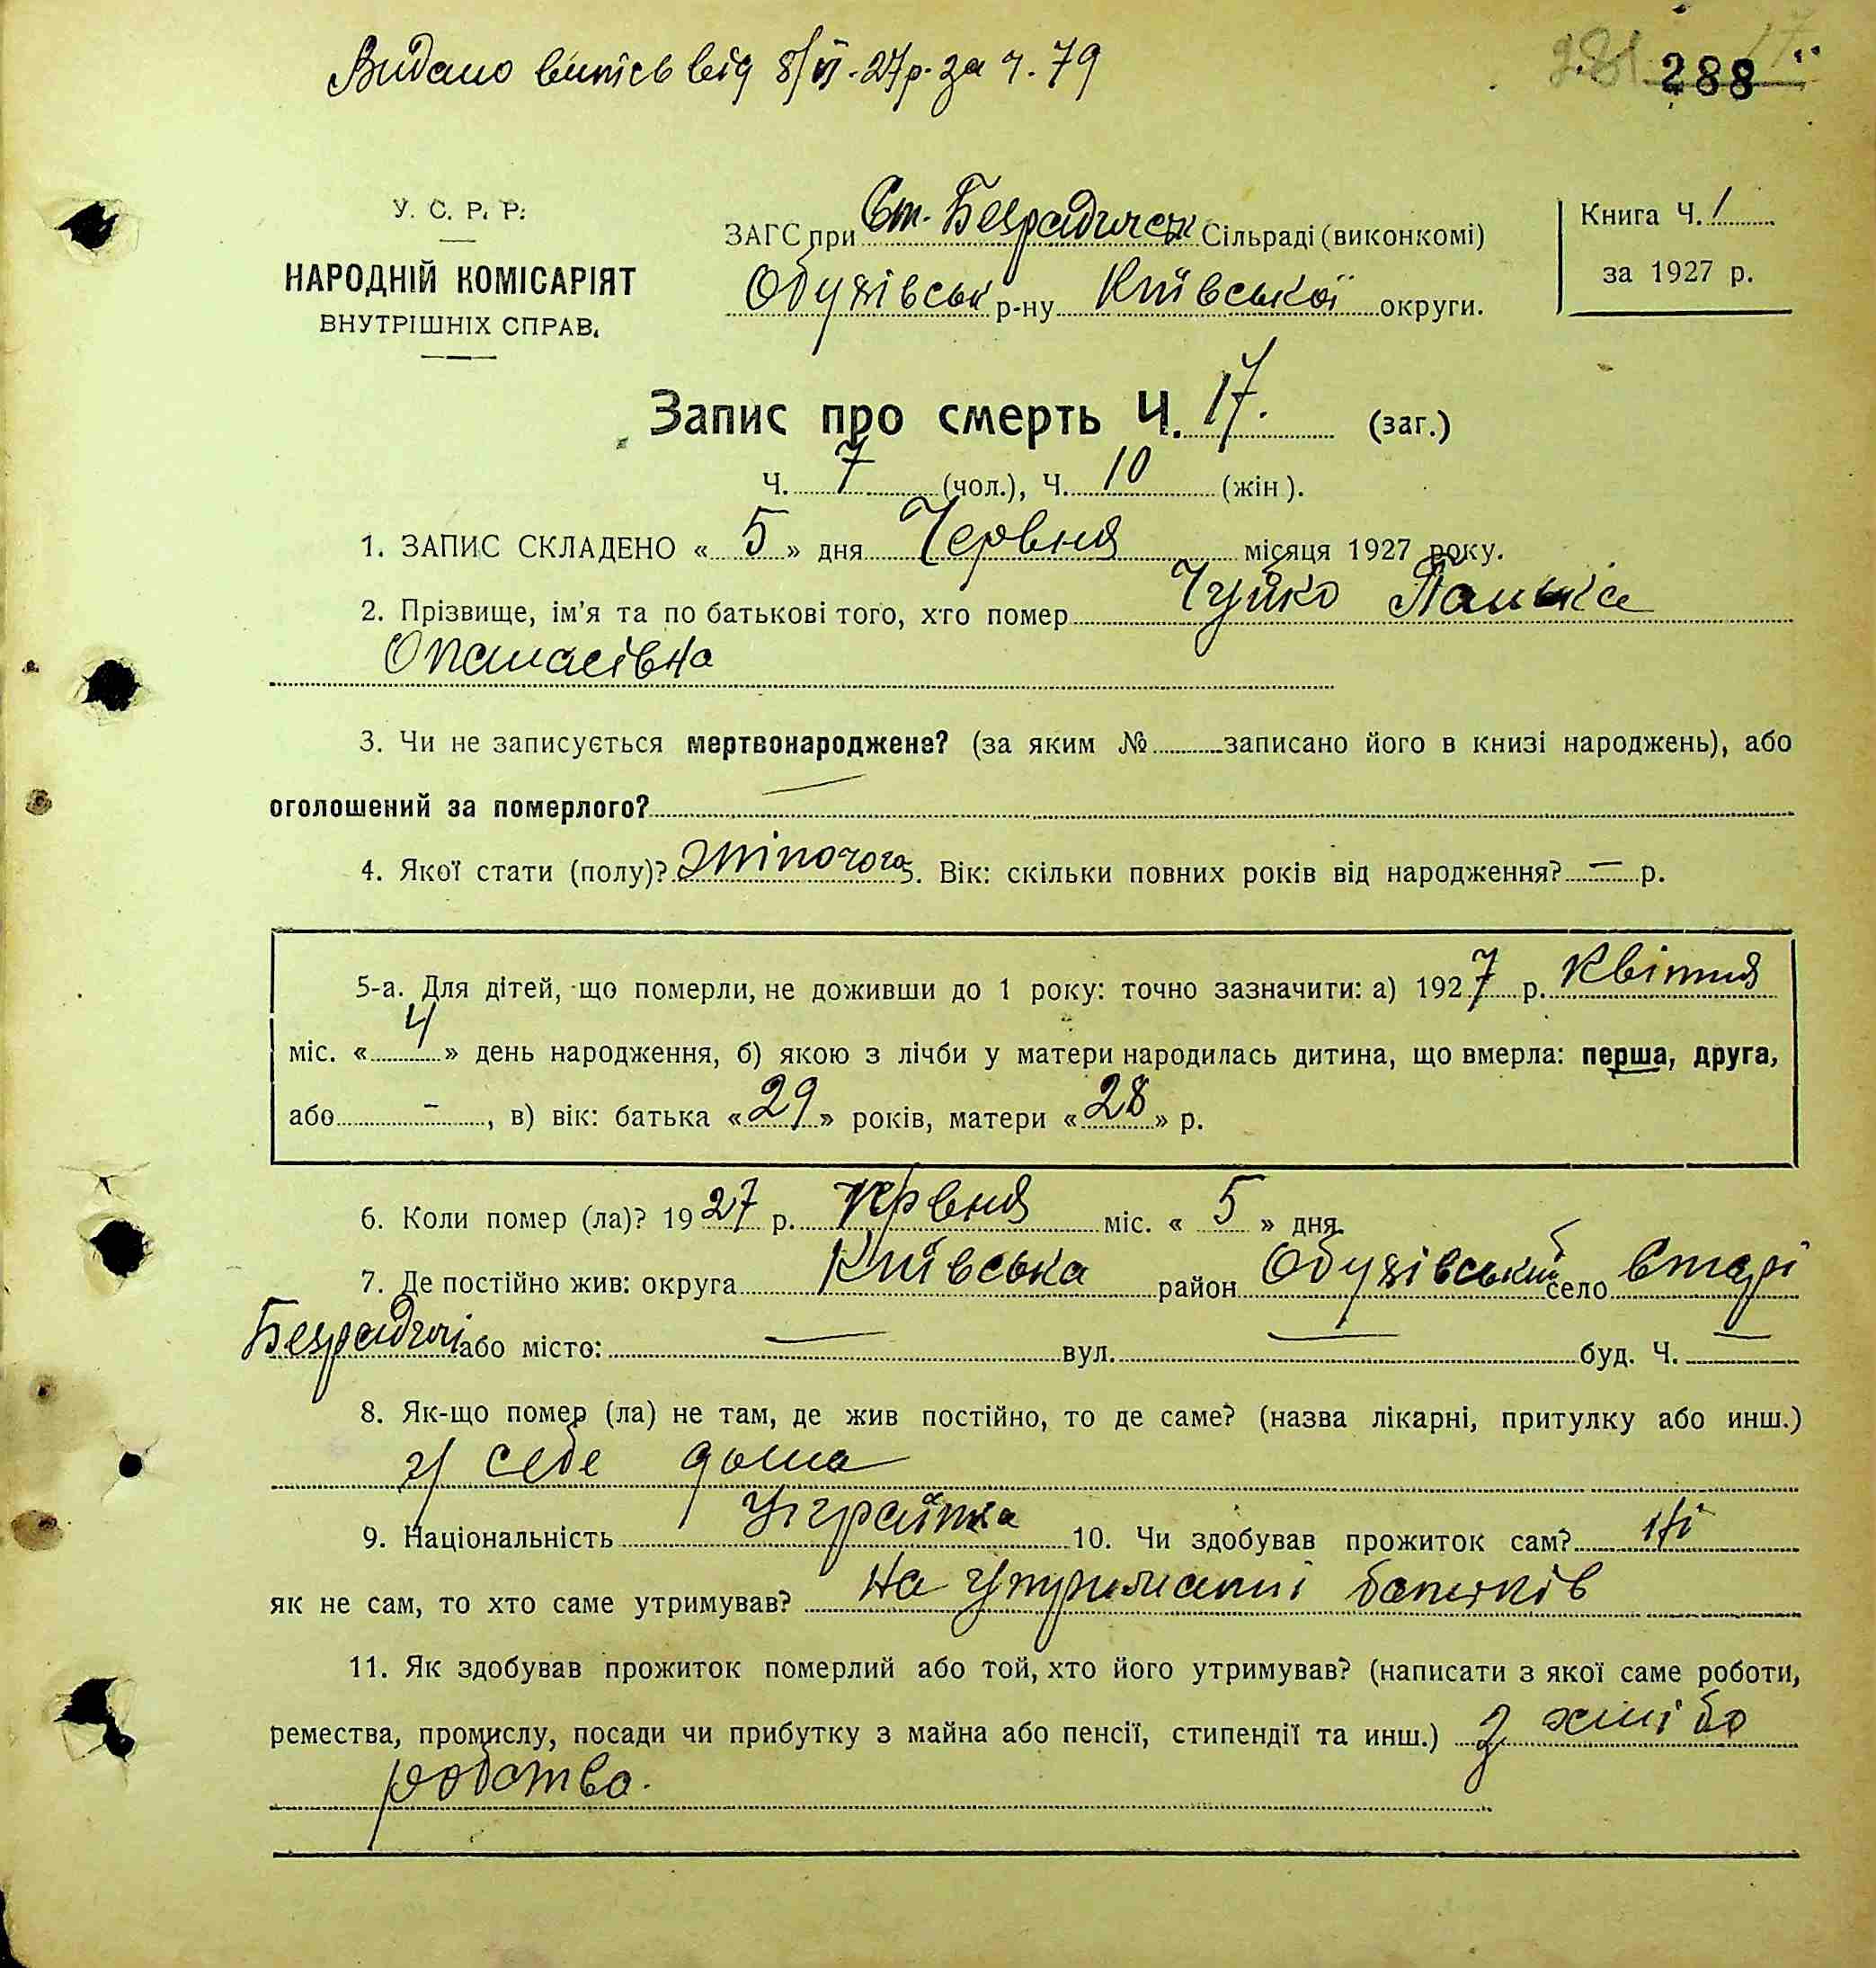 Видано випісь від 8/VI-27р. за ч. 79
288
У. С. Р. Р.
НАРОДНІЙ КОМІСАРІЯТ
ВНУТРІШНІХ СПРАВ.
ЗАГС при Ст. Безрадичськ Сільраді (виконкомі)
Обухівськ р-ну Київської округи.
Книга Ч. 1
за 1927 р.
Запис про смерть Ч. 17. (заг.)
Ч. 7 (чол.), Ч. 10 (жін).
1. ЗАПИС СКЛАДЕНО « 5 » дня Червня місяця 1927 року.
2. Прізвище, ім'я та по батькові того, хто помер Чуйко Панька
Опанасівна
3. Чи не записується мертвонароджене? (за яким № записано його в книзі народжень), або
оголошений за померлого? —
4. Якої стати (полу)? Жіночого 5. Вік: скільки повних років від народження? — р.
5-а. Для дітей, що померли, не доживши до 1 року: точно зазначити: а) 1927 р. Квітня
міс. « 4 » день народження, б) якою з лічби у матери народилась дитина, що вмерла: перша, друга,
або - , в) вік: батька « 29 » років, матери « 28 » р.
6. Коли помер (ла)? 1927 р. Червня міс. « 5 » дня.
7. Де постійно жив: округа Київська район Обухівський село Старі
Безрадичі або місто: — вул. — буд. Ч. —
8. Як-що помер (ла) не там, де жив постійно, то де саме? (назва лікарні, притулку або инш.)
у себе дома
9. Національність Українка 10. Чи здобував прожиток сам? Ні
як не сам, то хто саме утримував? На утриманні батьків
11. Як здобував прожиток померлий або той, хто його утримував? (написати з якої саме роботи,
ремества, промислу, посади чи прибутку з майна або пенсії, стипендії та инш.) З хлібо
робства.